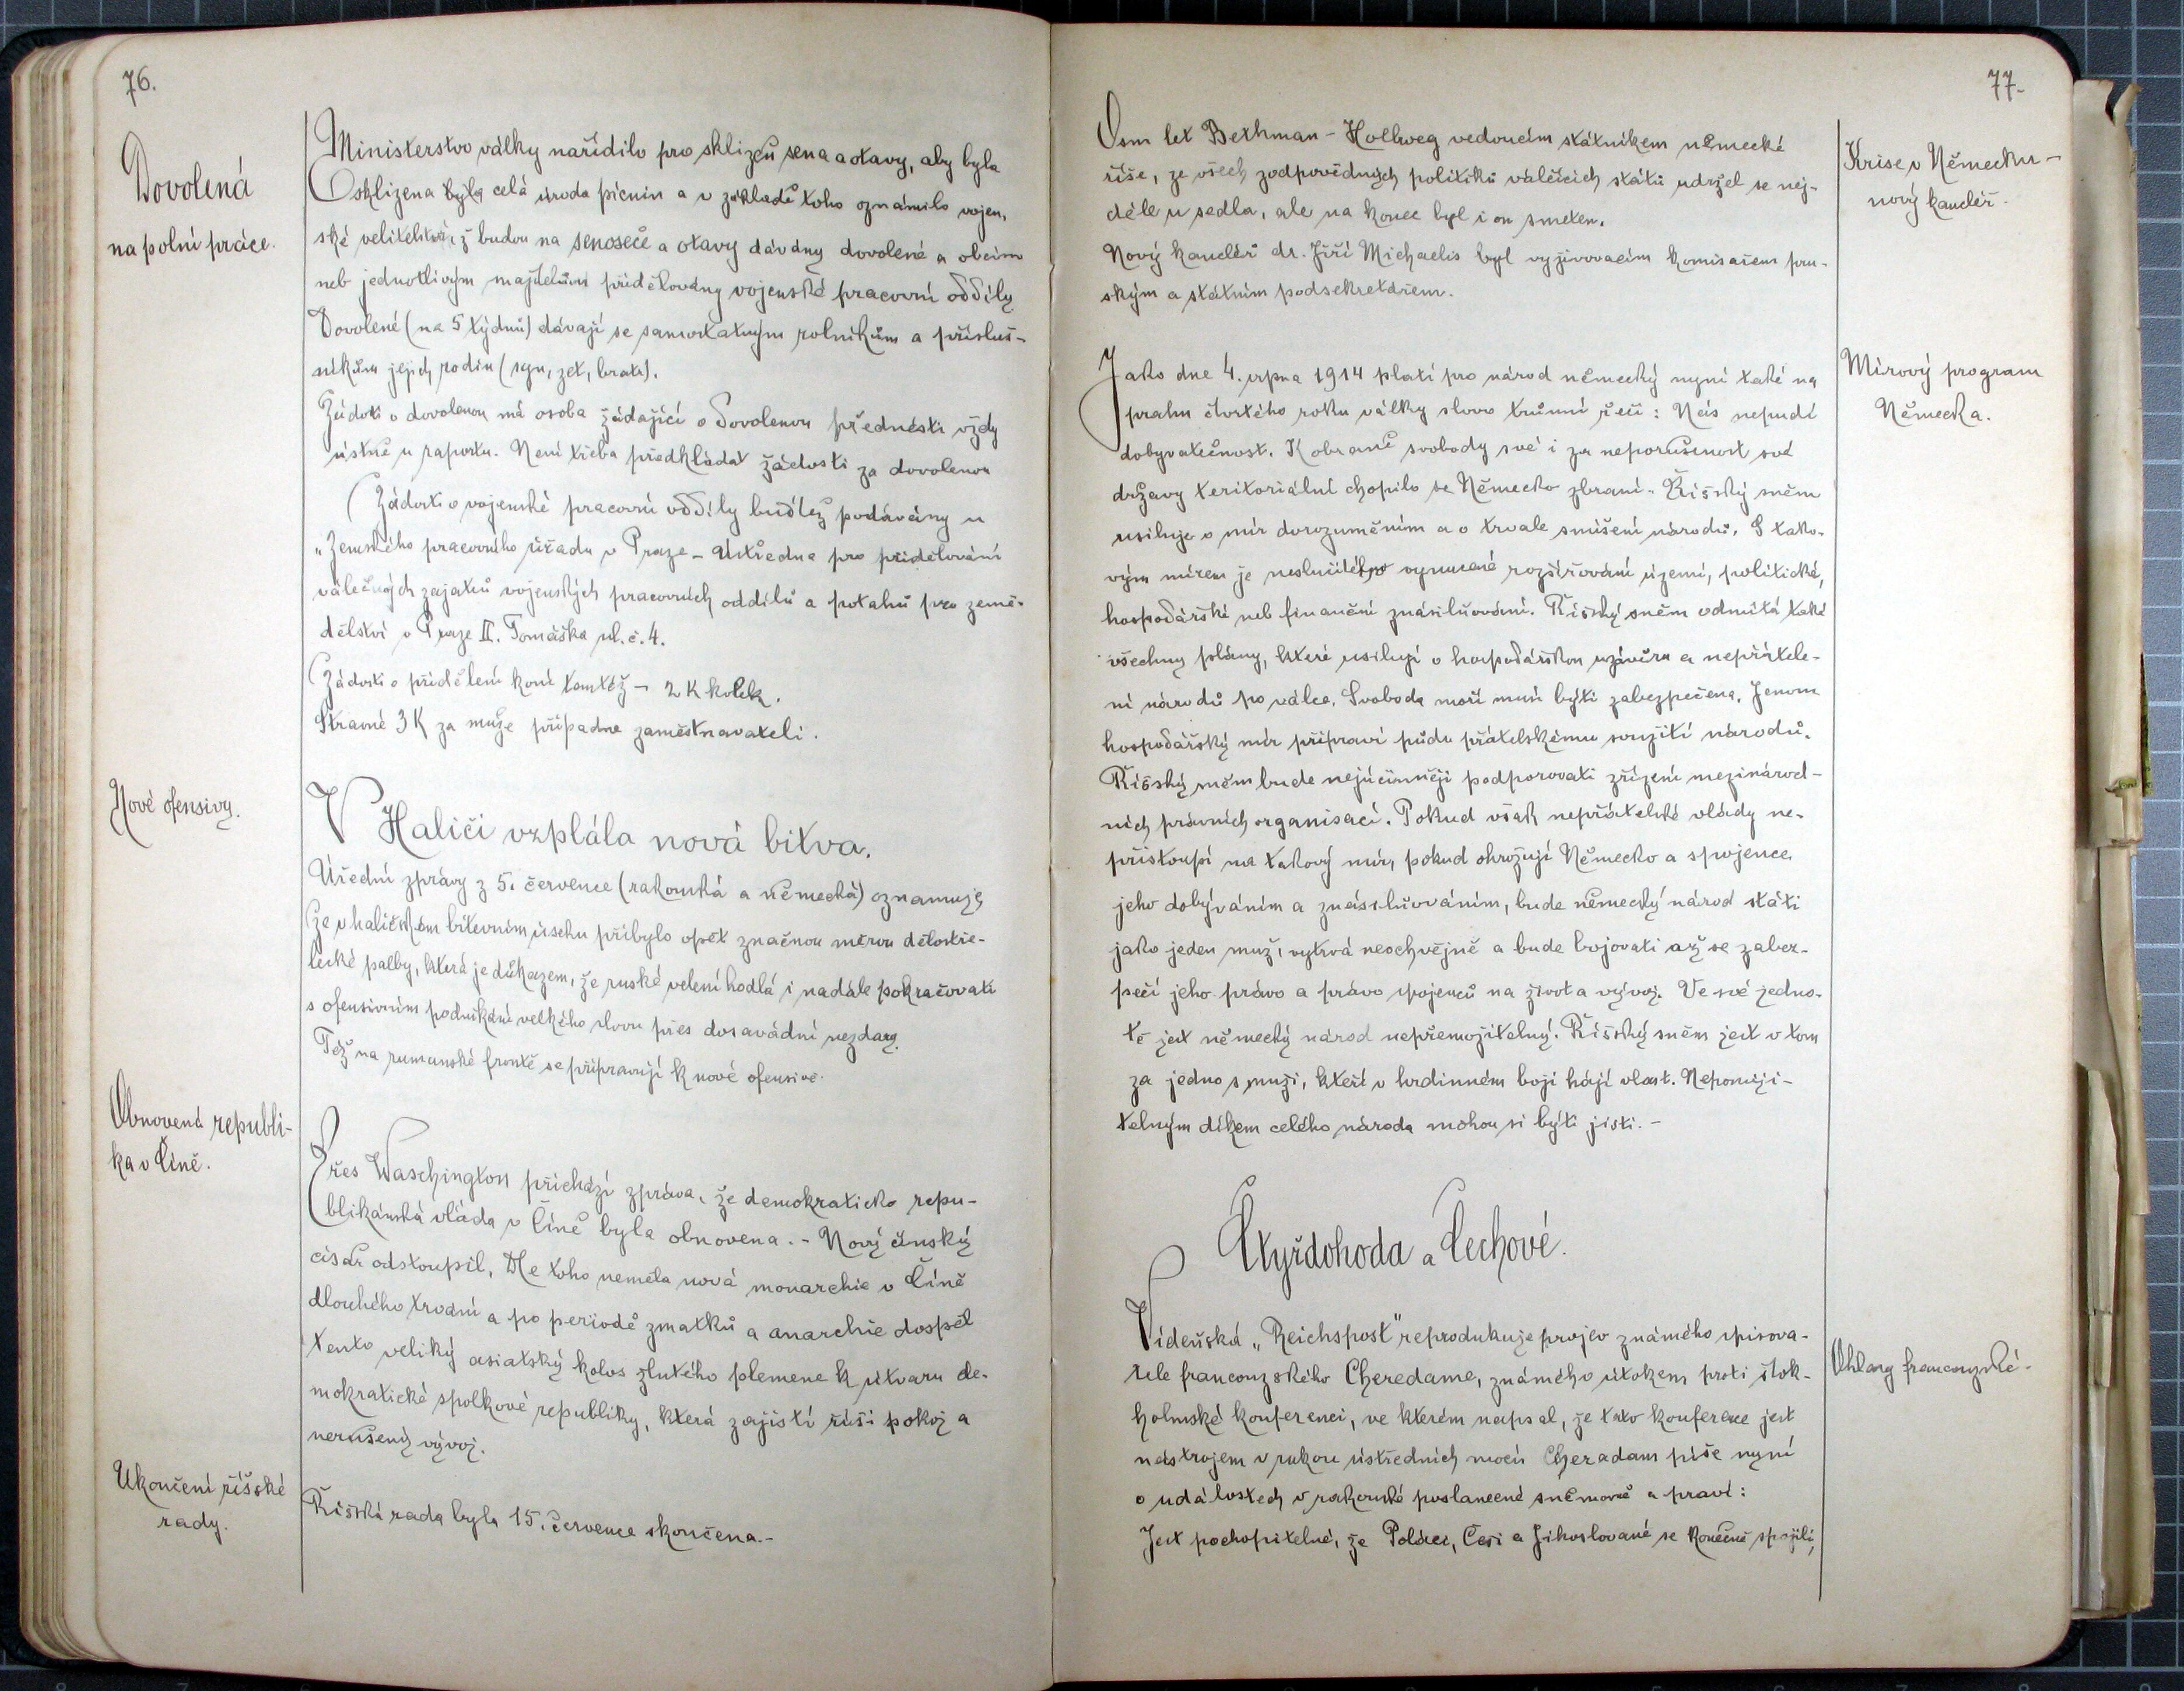 76.
Dovolená
na polní práce.
Ministerstvo války nařídilo pro sklizeň sena a otavy, aby byla
sklizena byla celá úroda pícnin a v základě toho oznámilo vojen,
ské velitelství, ž budou na senoseče a otavy dávány dovolené a obcím
neb jednotlivým majitelům přidělovány vojenské pracovní oddíly
Dovolené (na 5 týdnů) dávají se samostatným rolníkům a přísluš-
níkům jejich rodin (syn, zeť, bratr).
Žádosti o dovolenou má osoba žádající o dovolenou přednésti vždy
ústně u raportu. Není třeba předkládat žádosti za dovolenou
Žádosti o vojenské pracovní oddíly buďtež podávány u
„Zemského pracovního úřadu v Praze - Ústředna pro přidělování
válečných zajatců vojenských pracovních oddílů a potahů pro země-
dělství v Praze II. Tomáška ul. č. 4.
Žádosti o přidělení koní tamtéž - 2 K kolek.
Stravné 3 K za muže připadne zaměstnavateli.
Nové ofensivy.
V Haliči vzplála nová bitva.
Úřední zprávy z 5. července (rakouská a německá) oznamují
že v haličském bitevním úseku přibylo opět značnou měrou dělostře-
lecké palby, která je důkazem, že ruské velení hodlá i nadále pokračovati
s ofensivním podnikání velkého slovu přes dosavádní nezdary.
Též na rumunské frontě se připravují k nové ofensivě.
Obnovená republi-
ka v Číně.
Přes Waschington přichází zpráva, že demokraticko repu-
blikánská vláda v Číně byla obnovena. - Nový čínský
císař odstoupil. Dle toho neměla nová monarchie v Číně
dlouhého trvání a po periodě zmatků a anarchie dospěl
tento veliký asiatský kolos žlutého plemene k útvaru de-
mokratické spolkové republiky, která zajistí říši pokoj a
nerušený vývoj.
Ukončení říšské
rady.
Říšská rada byla 15. července skončena.-
77-
Osm let Bethman - Hollweg vedoucím státníkem německé
říše, ze všech zodpovědných politiků válčících států udržel se nej-
déle u sedla, ale na konec byl i on smeten.
Nový kancléř dr. Jiří Michaelis byl vyživovacím komisařem pru-
ským a státním podsekretářem.
Krise v Německu -
nový kancléř.
Jako dne 4. srpna 1914 platí pro národ německý nyní také na
prahu čtvrtého roku války slovo trůnní řeči: Nás nepudí
dobyvatečnost. K obraně svobody své i za neporušenost své
državy teritoriální chopilo se Německo zbraní. - Říšský sněm
usiluje o mír dorozuměním a o trvale smíšení národů. S tako-
vým mírem je neslučitelno vynucené rozšiřování území, politické,
hospodářské neb finanční znásilňování. Říšský sněm odmítá také
všechny plány, které usilují o hospodářskou uzávěru a nepřátele-
ní národů po válce. Svoboda moří musí býti zabezpečena. Jenom
hospodářský mír připraví půdu přátelskému soužití národů.
Říšský sněm bude nejúčinněji podporovati zřízení mezinárod-
ních právních organisací. Pokud však nepřátelské vlády ne-
přistoupí na takový mír, pokud ohrožují Německo a spojence,
jeho dobýváním a znásilňováním, bude německý národ státi
jako jeden muž, vytrvá neochvějně a bude bojovati až se zabez-
pečí jeho právo a právo spojenců na život a vývoj. Ve své jedno-
tě jest německý národ nepřemožitelný. Říšský sněm jest v tom
za jedno s muži, kteří v hrdinném boji hájí vlast. Nepomíji-
telným díkem celého národa mohou si býti jisti. -
Mírový program
Německa.
Čtyřdohoda a Čechové.
Vídeňská „Reichspost" reprodukuje projev známého spisova-
tele francouzského Cheredame, známého útokem proti štok-
holmské konferenci, ve kterém napsal, že tato konference jest
nástrojem v rukou ústředních mocí. Cheradam píše nyní
o událostech v rakouské poslanecné sněmovně a praví:
Jest pochopitelné, že Poláci, Češi a Jihoslované se konečně spojili,
Ohlasy francouzské.